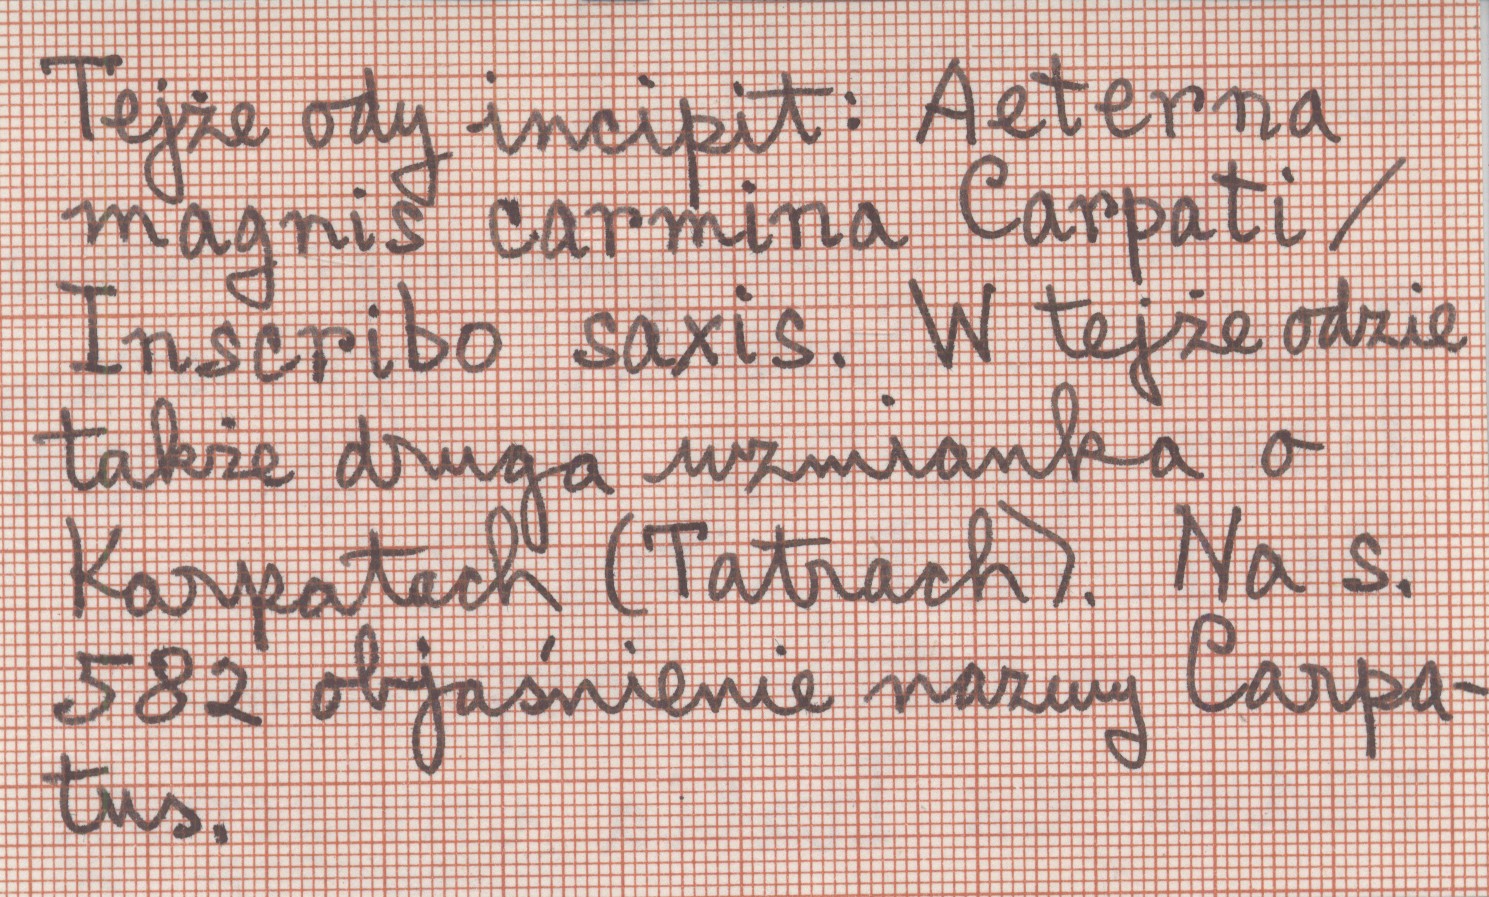 Tejże ody incipit: Aeterna
magnis carmina Carpati /
Inscribo saxis. W tejże odzie
także druga wzmianka o
Karpatach (Tatrach). Na s.
582 objaśnienie nazwy Carpa-
tus.